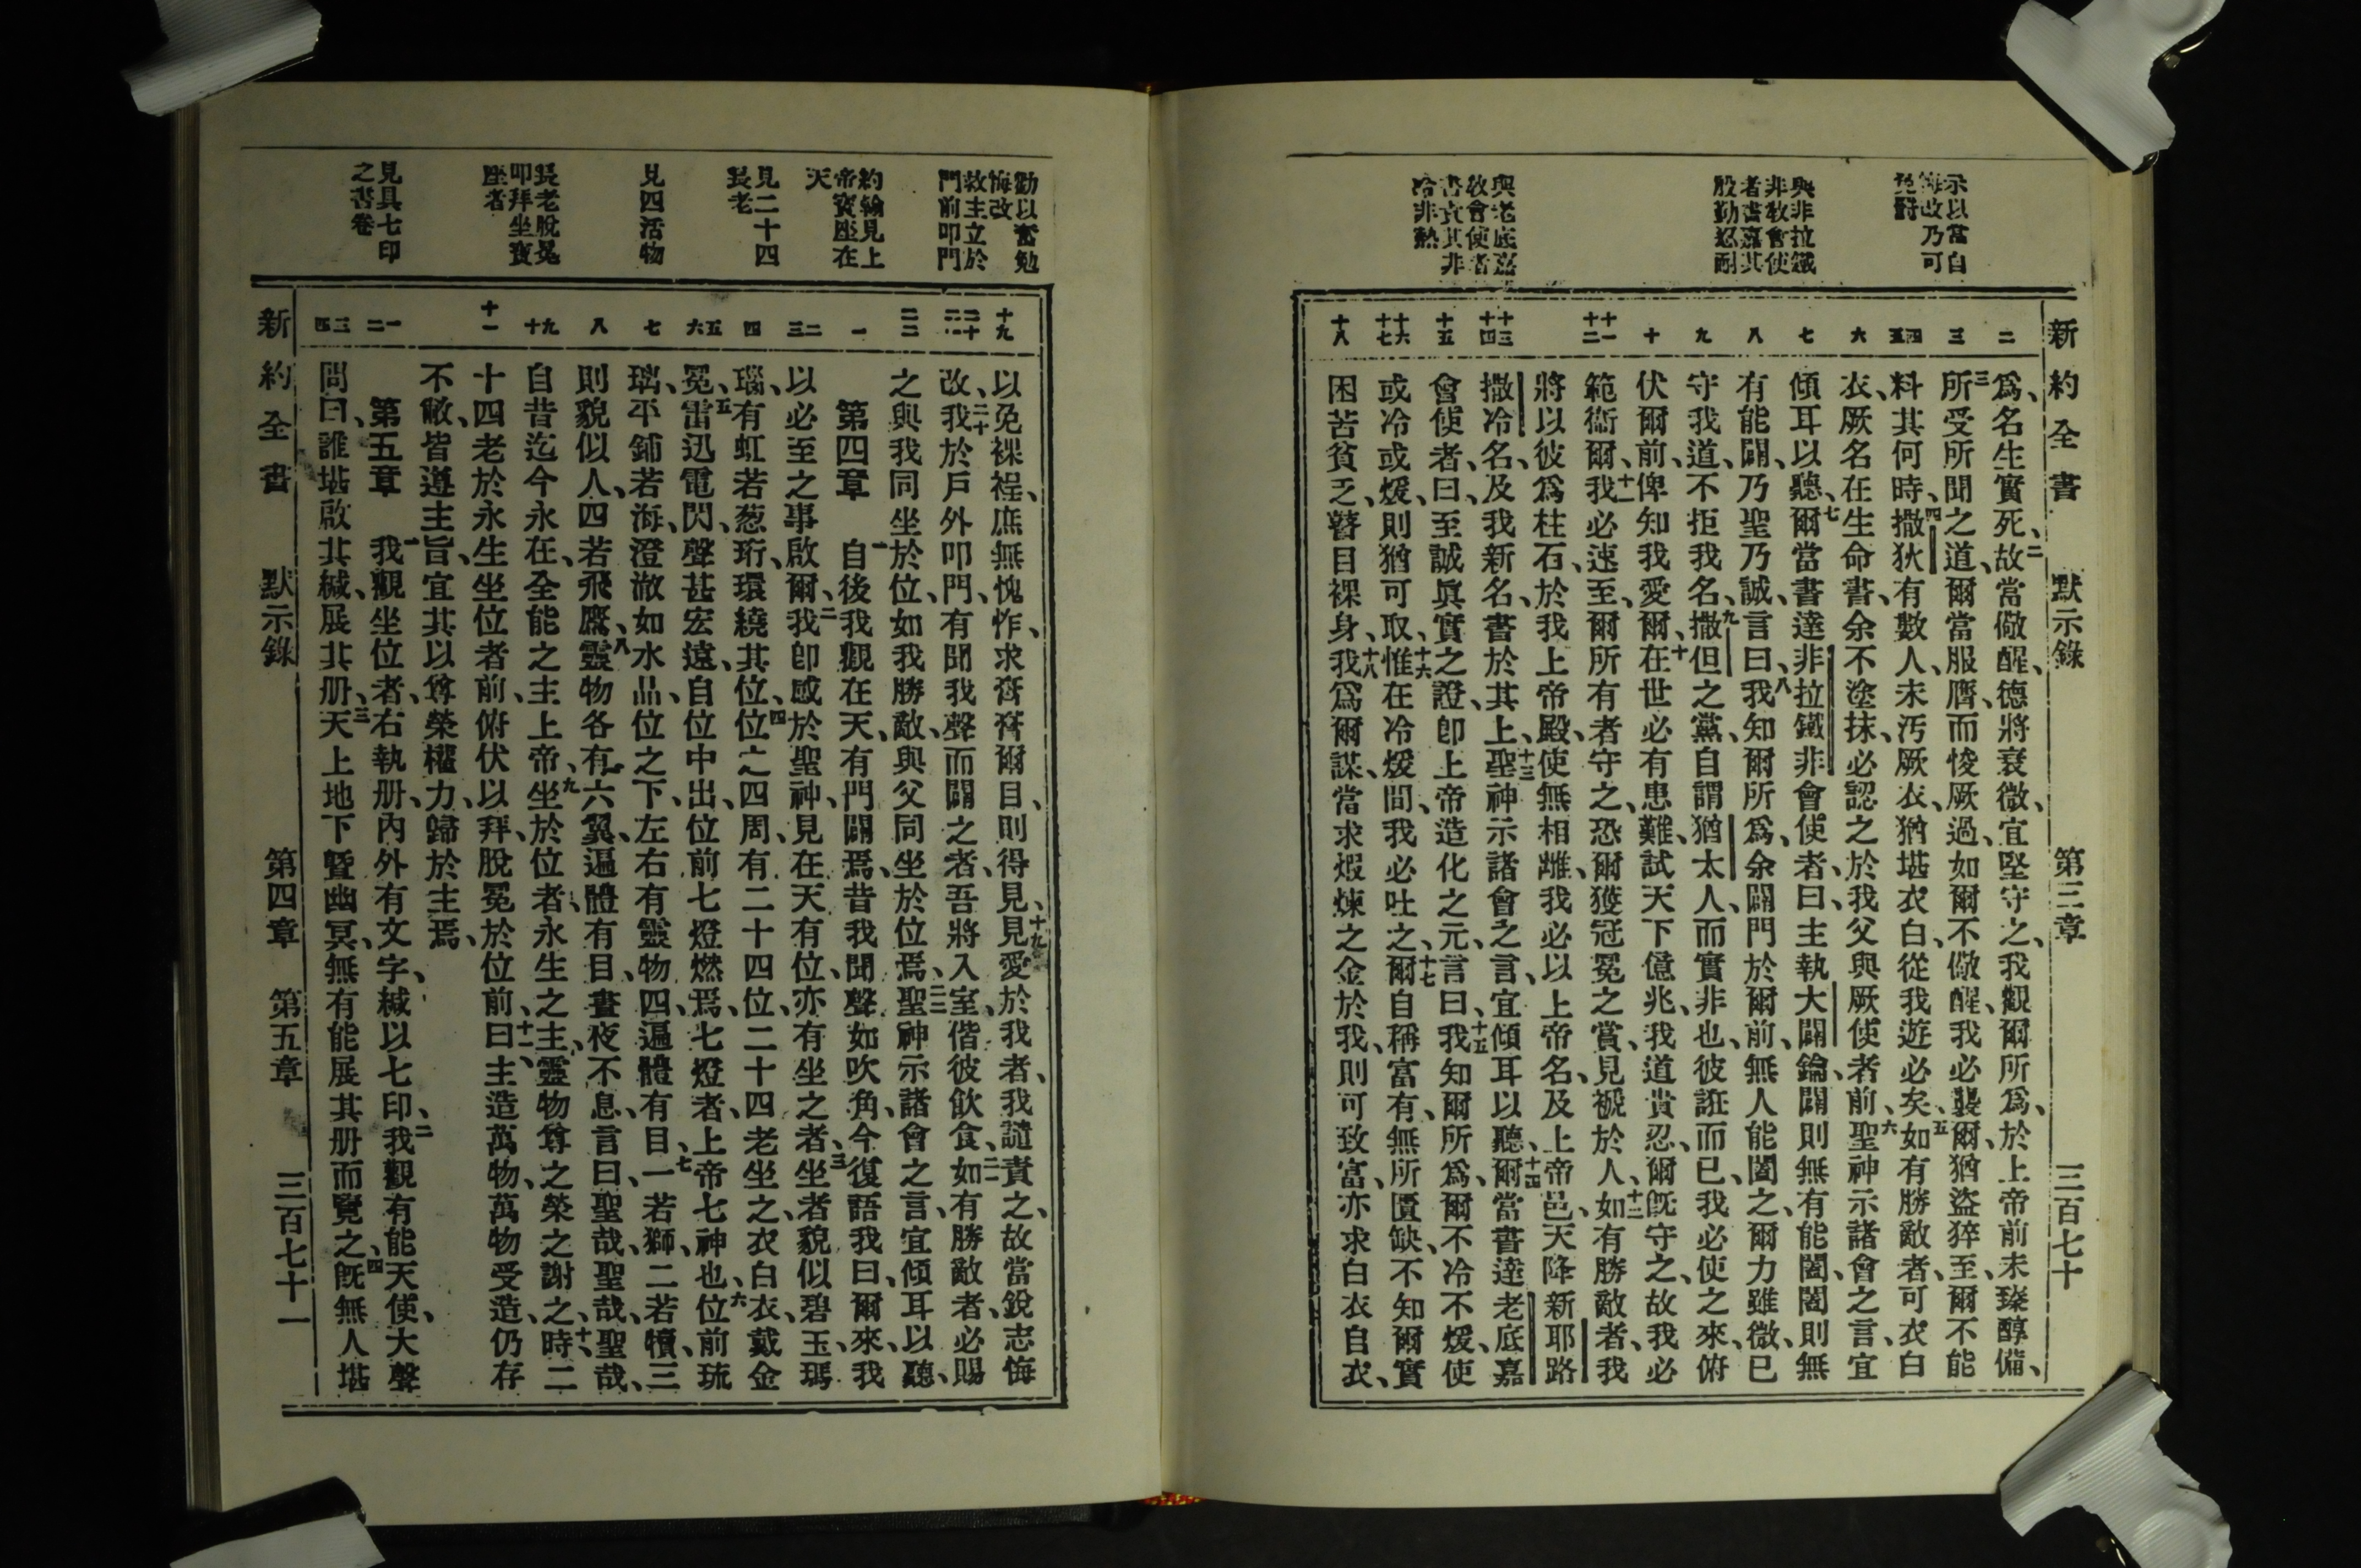 示以當自
儆改乃可
免罸
與非拉鐵
非敎會使
者書嘉其
殷勤忍耐
與老底嘉
敎會使者
書責其非
冷非熱
新約全書 默示錄 第三章 三百七十
二
三
四 五
六
七
八
九
十
十一 十二
十三 十四
十五
十六 十七
十八
爲、名生實死、二故當儆醒、德將衰微、宜堅守之、我觀爾所爲、於上帝前未臻醇備、
三所受所聞之道、爾當服膺、而悛厥過、如爾不儆醒、我必襲爾、猶盜猝至、爾不能
料其何時、四撒狄有數人、未汚厥衣、猶堪衣白、從我遊必矣、五如有勝敵者、可衣白
衣、厥名在生命書、余不塗抹、必認之於我父與厥使者前、六聖神示諸會之言、宜
傾耳以聽、七爾當書達非拉鐵非會使者曰、主執大闢鑰、闢則無有能闔、闔則無
有能闢、乃聖乃誠、言曰、八我知爾所爲、余闢門於爾前、無人能闔之、爾力雖微、已
守我道、不拒我名、九撒但之黨、自謂猶太人、而實非也、彼誑而已、我必使之來、俯
伏爾前、俾知我愛爾、十在世必有患難、試天下億兆、我道貴忍、爾旣守之、故我必
範衞爾、十一我必速至、爾所有者守之、恐爾獲冠冕之賞、見褫於人、十二如有勝敵者、我
將以彼爲柱石、於我上帝殿、使無相離、我必以上帝名、及上帝邑、天降新耶路
撒冷名、及我新名、書於其上、十三聖神示諸會之言、宜傾耳以聽、十四爾當書達老底嘉
會使者、曰、至誠眞實之證、卽上帝造化之元、言曰、十五我知爾所爲、爾不冷不煖、使
或冷或煖、則猶可取、十六惟在冷煖間、我必吐之、十七爾自稱富有、無所匱缺、不知爾實
困苦貧乏、瞽目裸身、十八我爲爾謀、當求煆煉之金於我、則可致富、亦求白衣自衣、
勸以奮勉
悔改
救主立於
門前叩門
約翰見上
帝寶座在
天
見二十四
長老
見四活物
長老脫冕
叩拜坐寶
座者
見具七印
之書卷
十九
二十 二一
二二
一
二 三
四
五 六
七
八
九 十
十一
一 二
三 四
以免裸裎、庶無愧怍、求膏膏爾目、則得見、十九見愛於我者、我譴責之、故當銳志悔
改、二十我於戶外叩門、有聞我聲而闢之者、吾將入室、偕彼飮食、二一如有勝敵者、必賜
之與我同坐於位、如我勝敵、與父同坐於位焉、二二聖神示諸會之言、宜傾耳以聽、
第四章 一自後我觀在天、有門闢焉、昔我聞聲如吹角、今復語我曰、爾來、我
以必至之事啟爾、二我卽感於聖神、見在天有位、亦有坐之者、三坐者貌似碧玉、瑪
瑙、有虹若葱珩、環繞其位、四位之四周、有二十四位、二十四老坐之、衣白衣、戴金
冕、五雷迅電閃、聲甚宏遠、自位中出、位前七燈燃焉、七燈者、上帝七神也、六位前琉
璃、平鋪若海、澄澈如水晶、位之下、左右有靈物四、遍體有目、七一若獅、二若犢、三
則貌似人、四若飛鷹、八靈物各有六翼、遍體有目、晝夜不息、言曰、聖哉、聖哉、聖哉、
自昔迄今永在、全能之主上帝、九坐於位者、永生之主、靈物尊之榮之謝之時、十二
十四老於永生坐位者前、俯伏以拜、脫冕於位前、曰、十一主造萬物、萬物受造、仍存
不敝、皆遵主旨、宜其以尊榮權力、歸於主焉、
第五章 一我觀坐位者、右執册、內外有文字、緘以七印、二我觀有能天使、大聲
問曰、誰堪啟其緘、展其册、三天上地下曁幽冥、無有能展其册而覽之、四旣無人堪
新約全書 默示錄 第四章 第五章 三百七十一